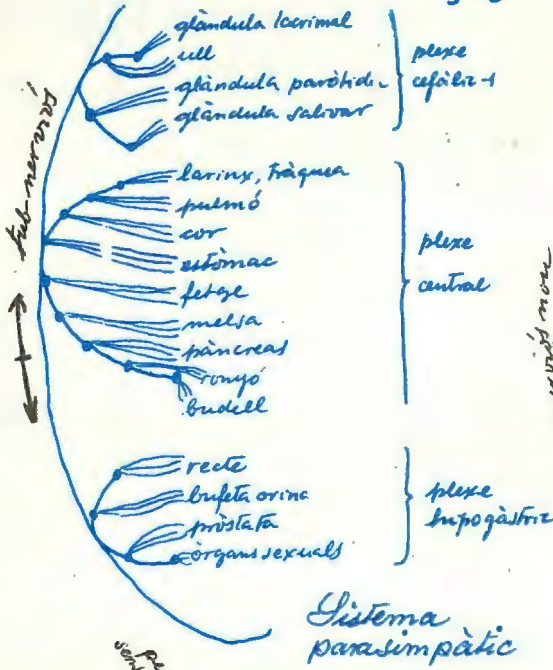 glàndula lacrimal
ull
glàndula paròtida
glàndula salivar
plexe
cefàlic
tub nerviós
larinx, tràquea
pulmó
cor
estómac
fetge
melsa
pàncreas
ronyó
budell
plexe
central
recte
bufeta orina
pròstata
òrgans sexuals
plexe
hipogàstric
Sistema
parasimpàtic